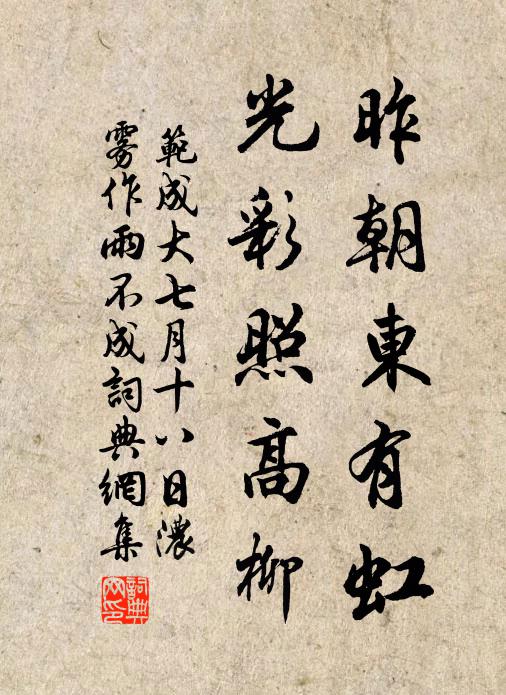 昨朝東有虹
光彩照高柳
範成大七月十八日濃
霧作雨不成詞典網集
詞典
文印